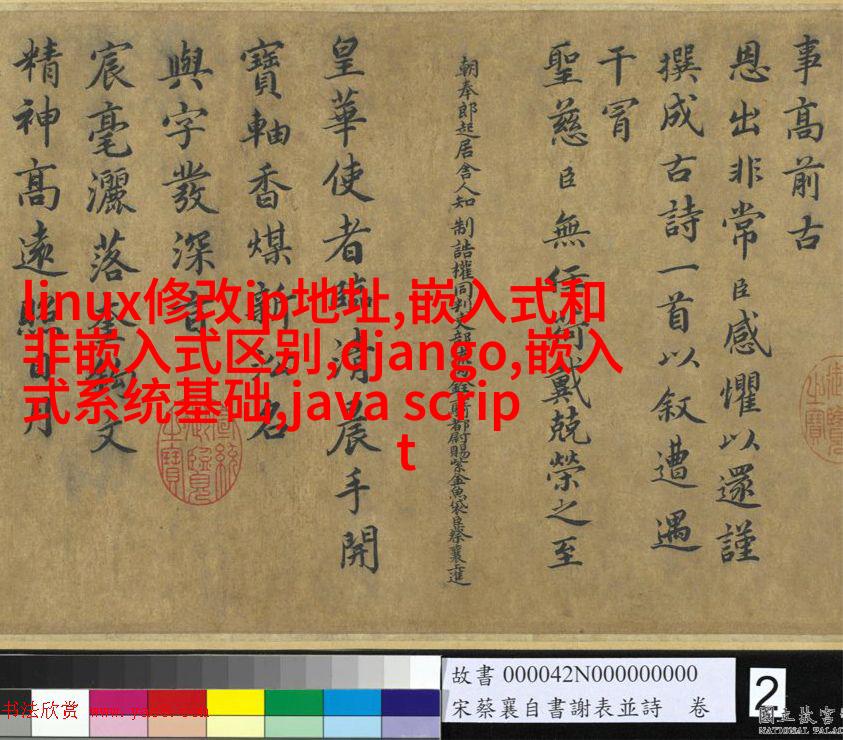 事高前古
恩出非常臣感懼以還謹
撰成古詩一首以叙遭遇
干冐
聖慈臣無任荷戴兢榮之至
朝奉郎起居舍人知制誥權同判
騎都尉賜紫金魚袋臣蔡襄上進
皇華使者臨清晨手開
寶軸香煤新
名
與字發深
宸毫灑落
文
精神高遠照日月
linux修改ip地址,嵌入式和
非嵌入式区别,django,嵌入
式系统基础,java scrip
t
故書 000042N000000000
宋蔡襄自書謝表並詩 卷
2
書法欣赏
國立故宮
NATIONAL PALAC